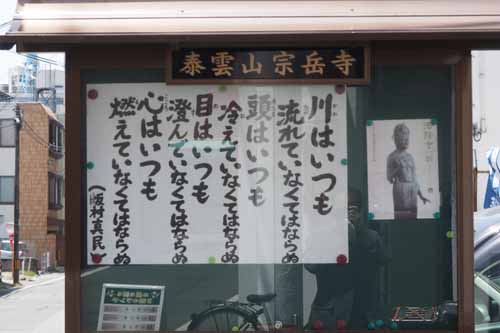 泰雲山宗岳寺
川はいつも
流れていなくてはならぬ
頭はいつも
冷えていなくてはならぬ
目はいつも
澄んでいなくてはならぬ
心はいつも
燃えていなくてはならぬ
(坂村真民)